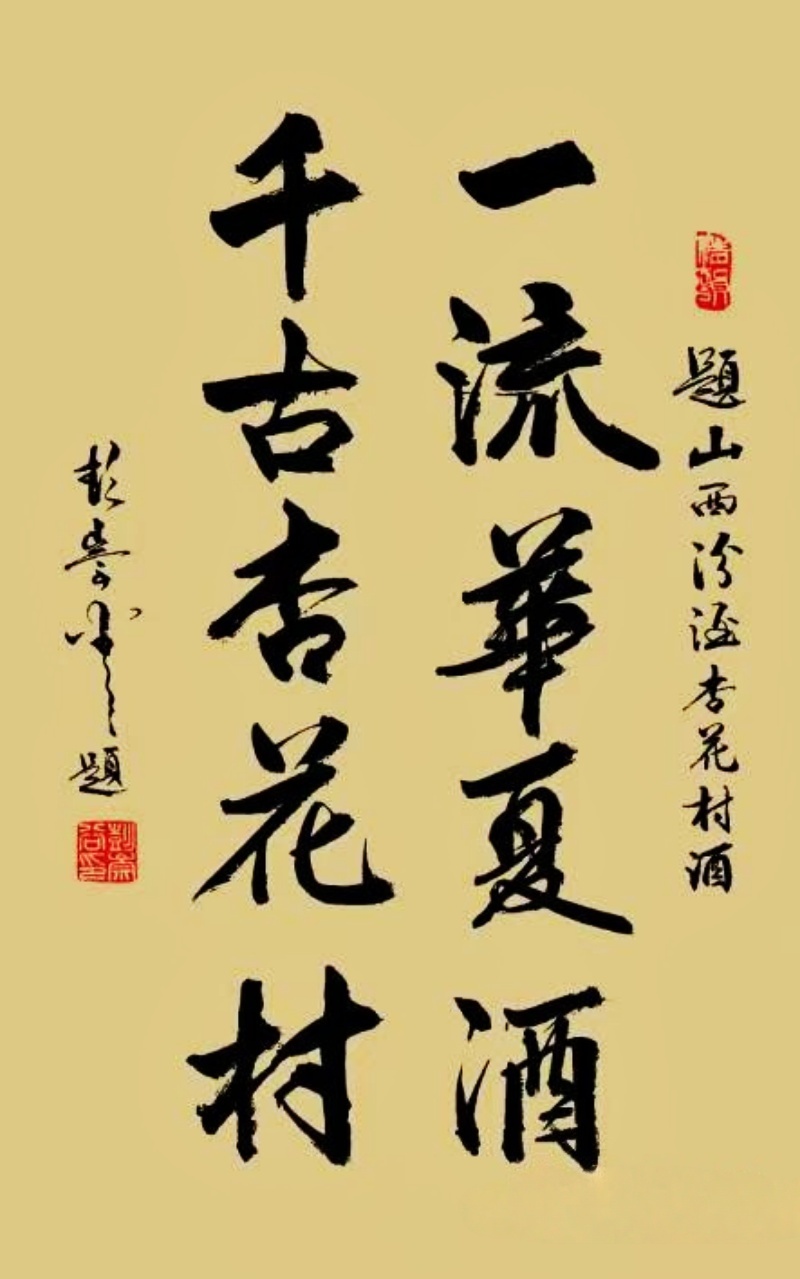 題山西汾酒杏花村酒
一流華夏酒
千古杏花村
彭崇谷題